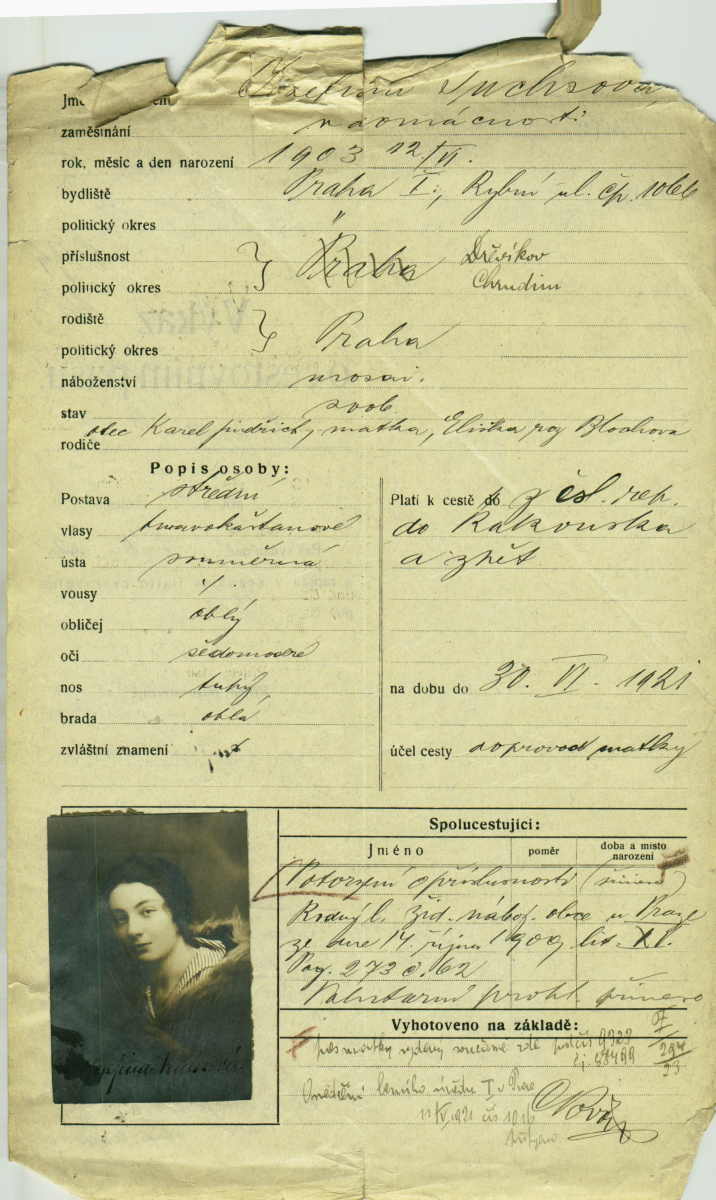 Fuchsová
zaměstnání v domácnosti
rok, měsíc a den narození 1903 12/VI.
bydliště Praha I., Rybní ul. čp. 1066
politický okres "
příslušnost Praha Dřevíkov
politický okres Chrudim
rodiště Praha
politický okres
náboženství mosai.
stav svob
rodiče otec Karel Jindřich, matka, Eliška roz Blochova
Popis osoby:
Postava střední
vlasy tmavokaštanové
ústa souměrná
vousy
obličej oblý
oči šedomodré
nos tuhý
brada oblá
zvláštní znamení
Platí k cestě do z čsl. rep.
do Rakouska
a zpět
na dobu do 30. VI. 1921
účel cesty doprovod matky
Spolucestující:
Jméno poměr doba a místo narození
Potvrzení o příslušnosti
Rodný l. žid. nábož. obce v Praze
ze dne 14. října 1909 lit. XI.
Pag. 273 č. 62
Vyhotoveno na základě:
pas matky vydaný současně zde pod čís 9323